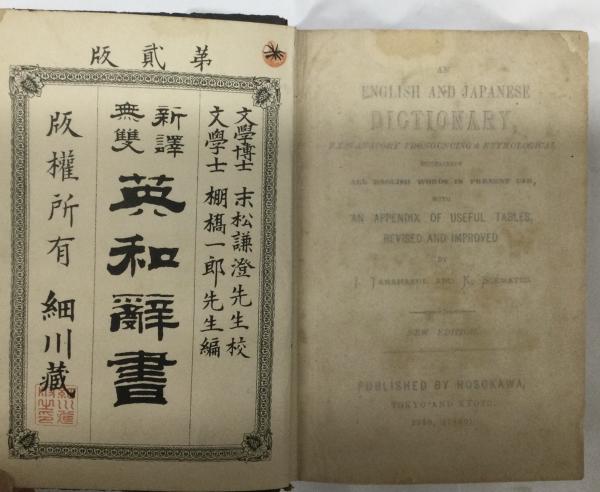 第貳版
文學博士 末松謙澄先生校
文學士 棚橋一郎先生編
新譯
無雙
英和辭書
版權所有 細川藏
AN
ENGLISH AND JAPANESE
DICTIONARY,
EXPLANATORY PRONOUNCING & ETYMOLOGICAL
CONTAINING
ALL ENGLISH WORDS IN PRESENT USE,
WITH
AN APPENDIX OF USEFUL TABLES,
REVISED AND IMPROVED
BY
I. TANAHASHI AND K. SUEMATSU.
NEW EDITION.
PUBLISHED BY HOSOKAWA,
TOKYO AND KYOTO.